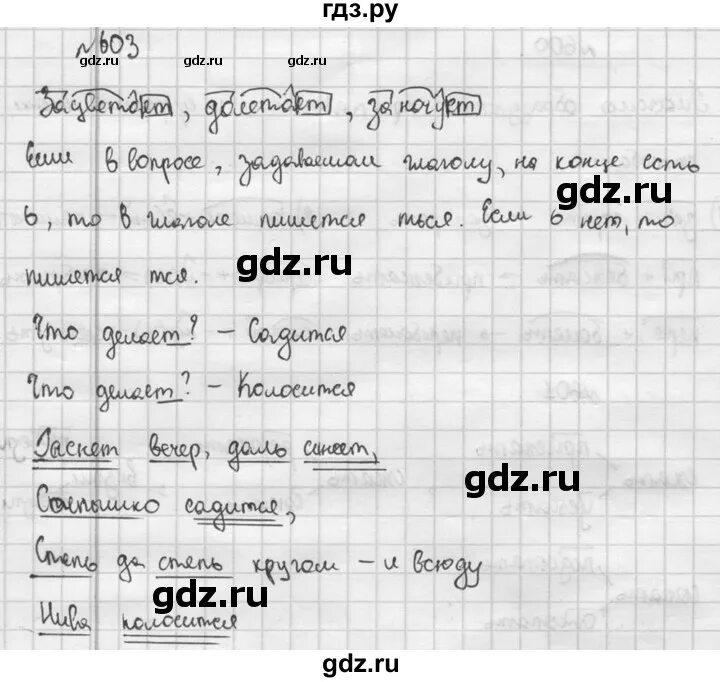 гдз.ру
№603
gdz.ru gdz.ru
Зацветает, долетает, заночует
Если в вопросе, задаваемом глаголу, на конце есть
gdz.ru
ь, то в глаголе пишется ться. Если ь нет, то
gdz.ru
пишется тся.
Что делает? – Садится
gdz.ru
Что делает? – Колосится
Гаснет вечер, даль синеет,
gdz.ru
Солнышко садится,
gdz.ru
Степь да степь кругом – и всюду
Нива колосится
gdz.ru
gdz.ru